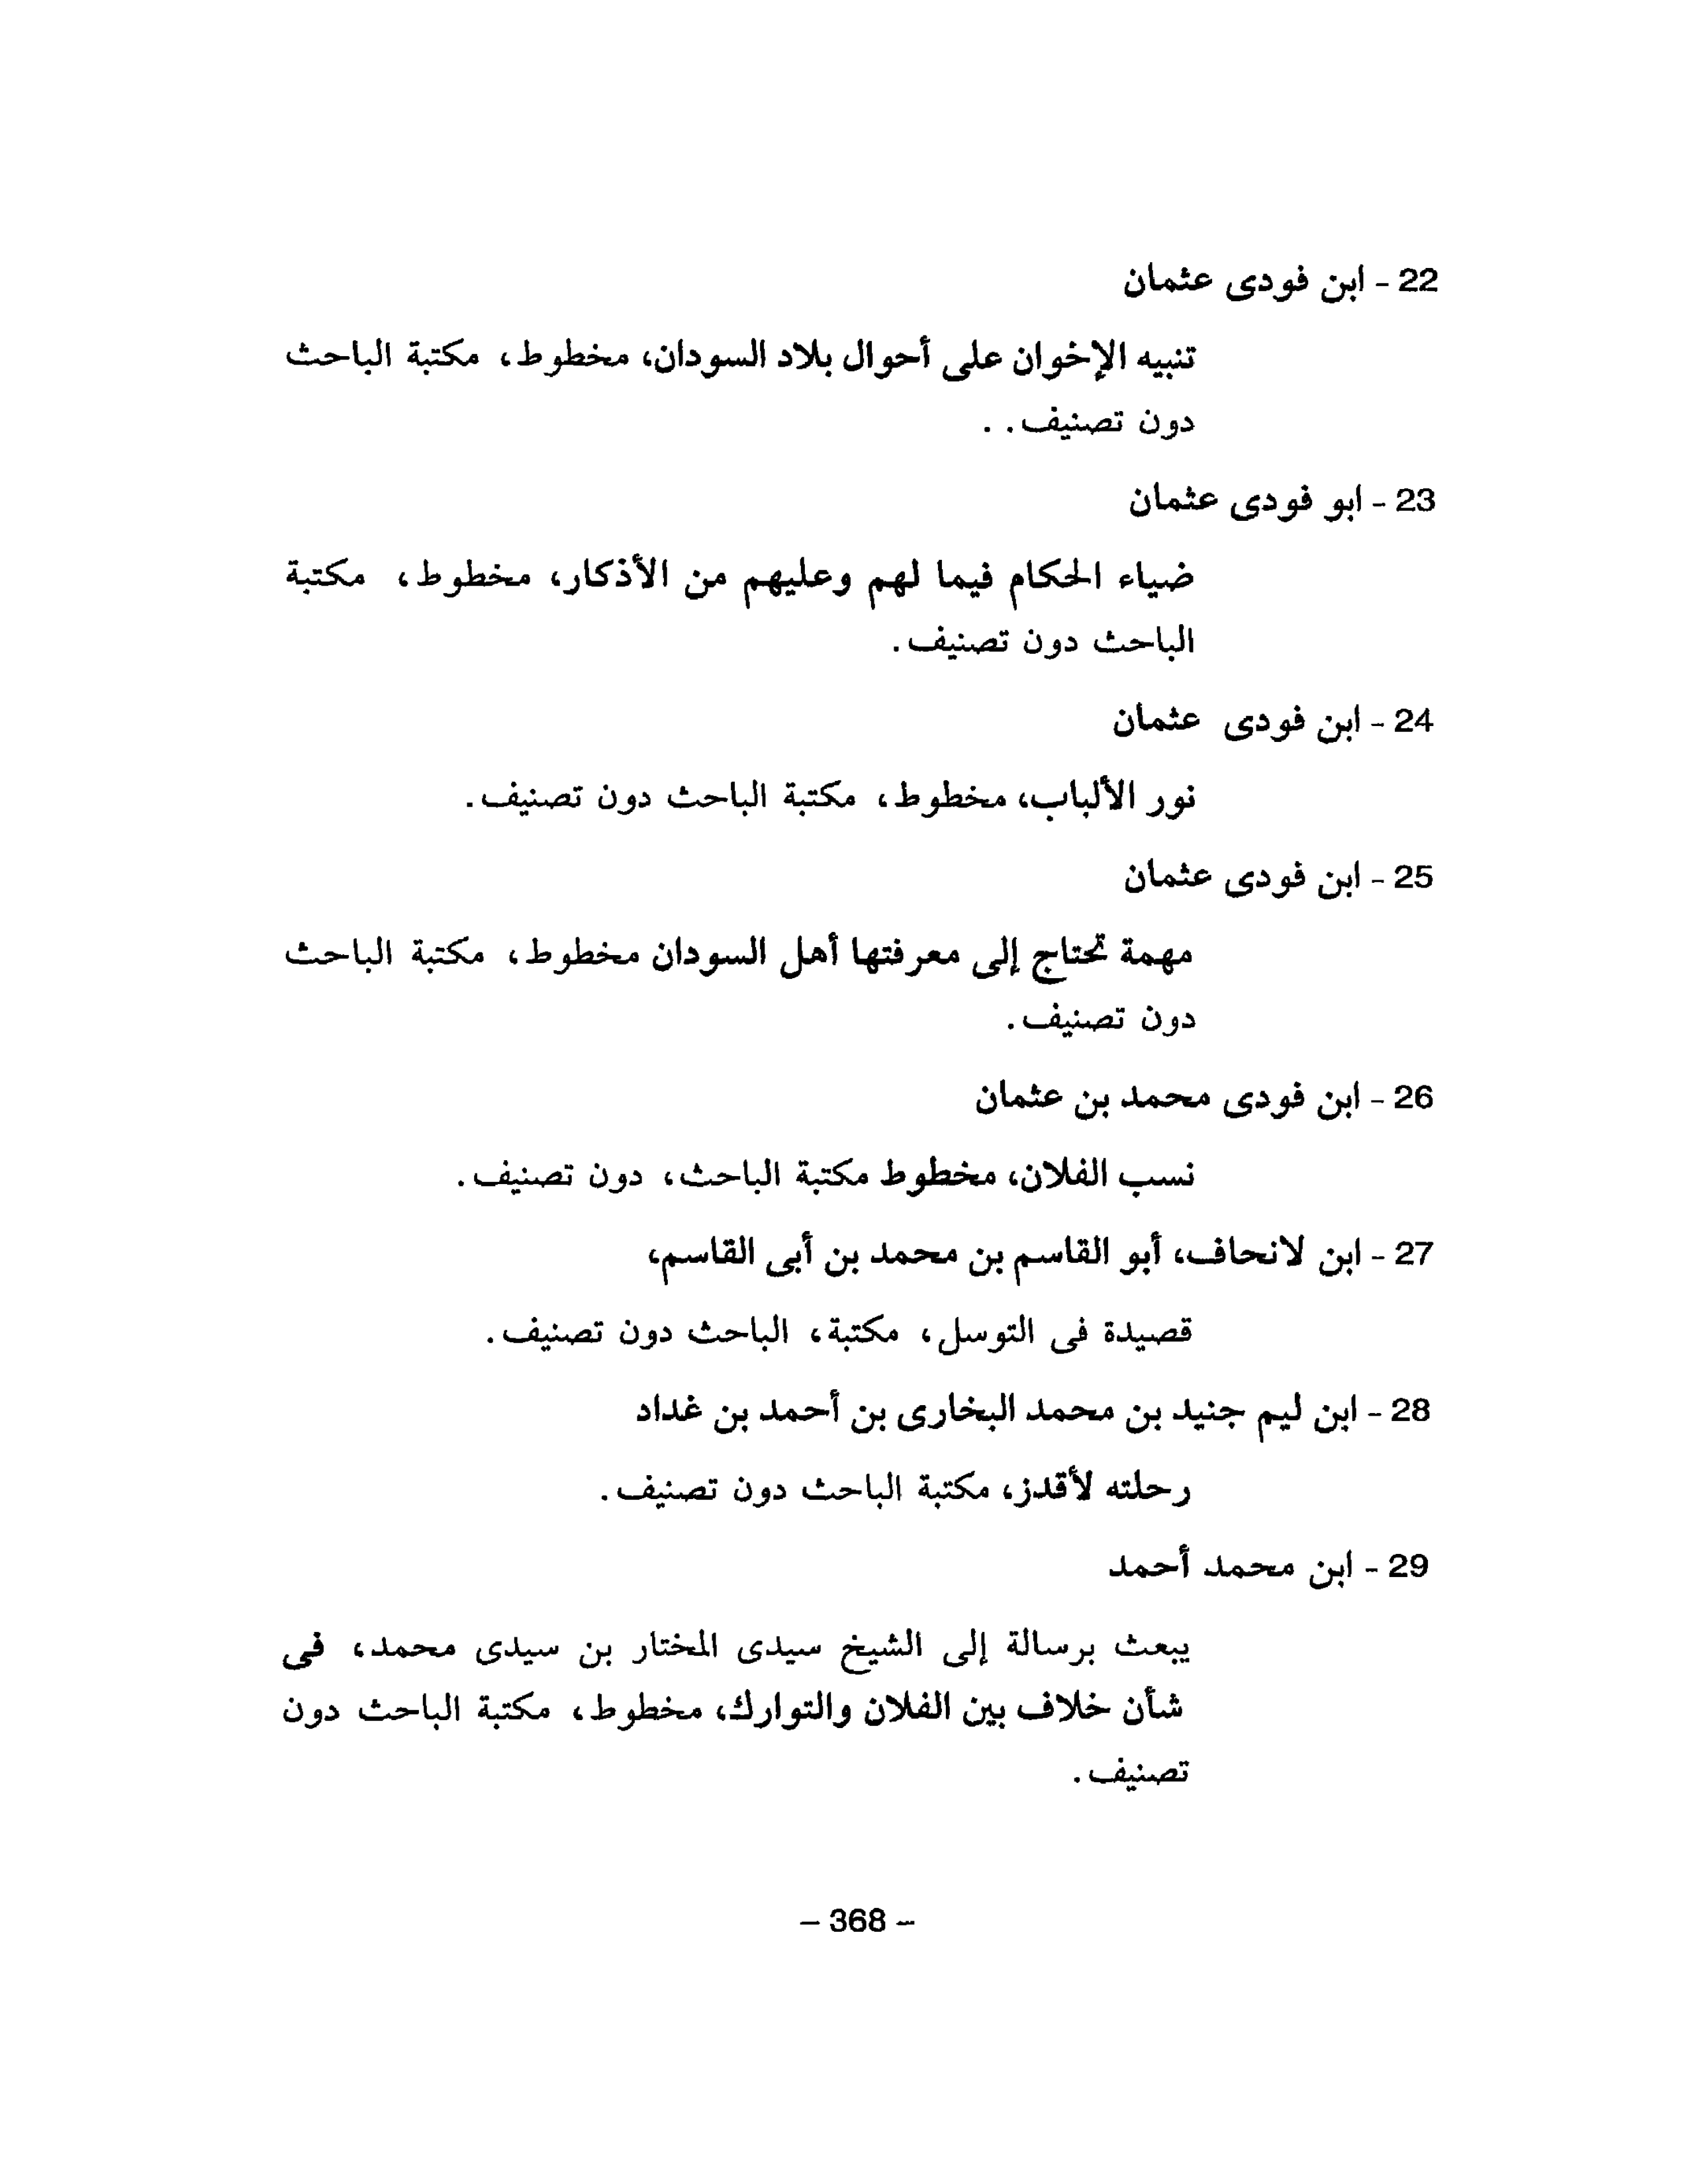 22 - ابن فودى عثمان
تنبيه الإخوان على أحوال بلاد السودان، مخطوط، مكتبة الباحث
دون تصنيف. .
23 - ابو فودى عثمان
ضياء الحكام فيما لهم وعليهم من الأذكار، مخطوط، مكتبة
الباحث دون تصنيف.
24 - ابن فودى عثمان
نور الألباب، مخطوط، مكتبة الباحث دون تصنيف.
25 - ابن فودى عثمان
مهمة تحتاج إلى معرفتها أهل السودان مخطوط، مكتبة الباحث
دون تصنيف.
26 - ابن فودى محمد بن عثمان
نسب الفلان، مخطوط مكتبة الباحث، دون تصنيف.
27 - ابن لانحاف، أبو القاسم بن محمد بن أبى القاسم،
قصيدة فى التوسل، مكتبة، الباحث دون تصنيف.
28 - ابن ليم جنيد بن محمد البخارى بن أحمد بن غداد
رحلته لأقدز، مكتبة الباحث دون تصنيف.
29 - ابن محمد أحمد
يبعث برسالة إلى الشيخ سيدى المختار بن سيدى محمد، فى
شأن خلاف بين الفلان والتوارك، مخطوط، مكتبة الباحث دون
تصنيف.
– 368 –